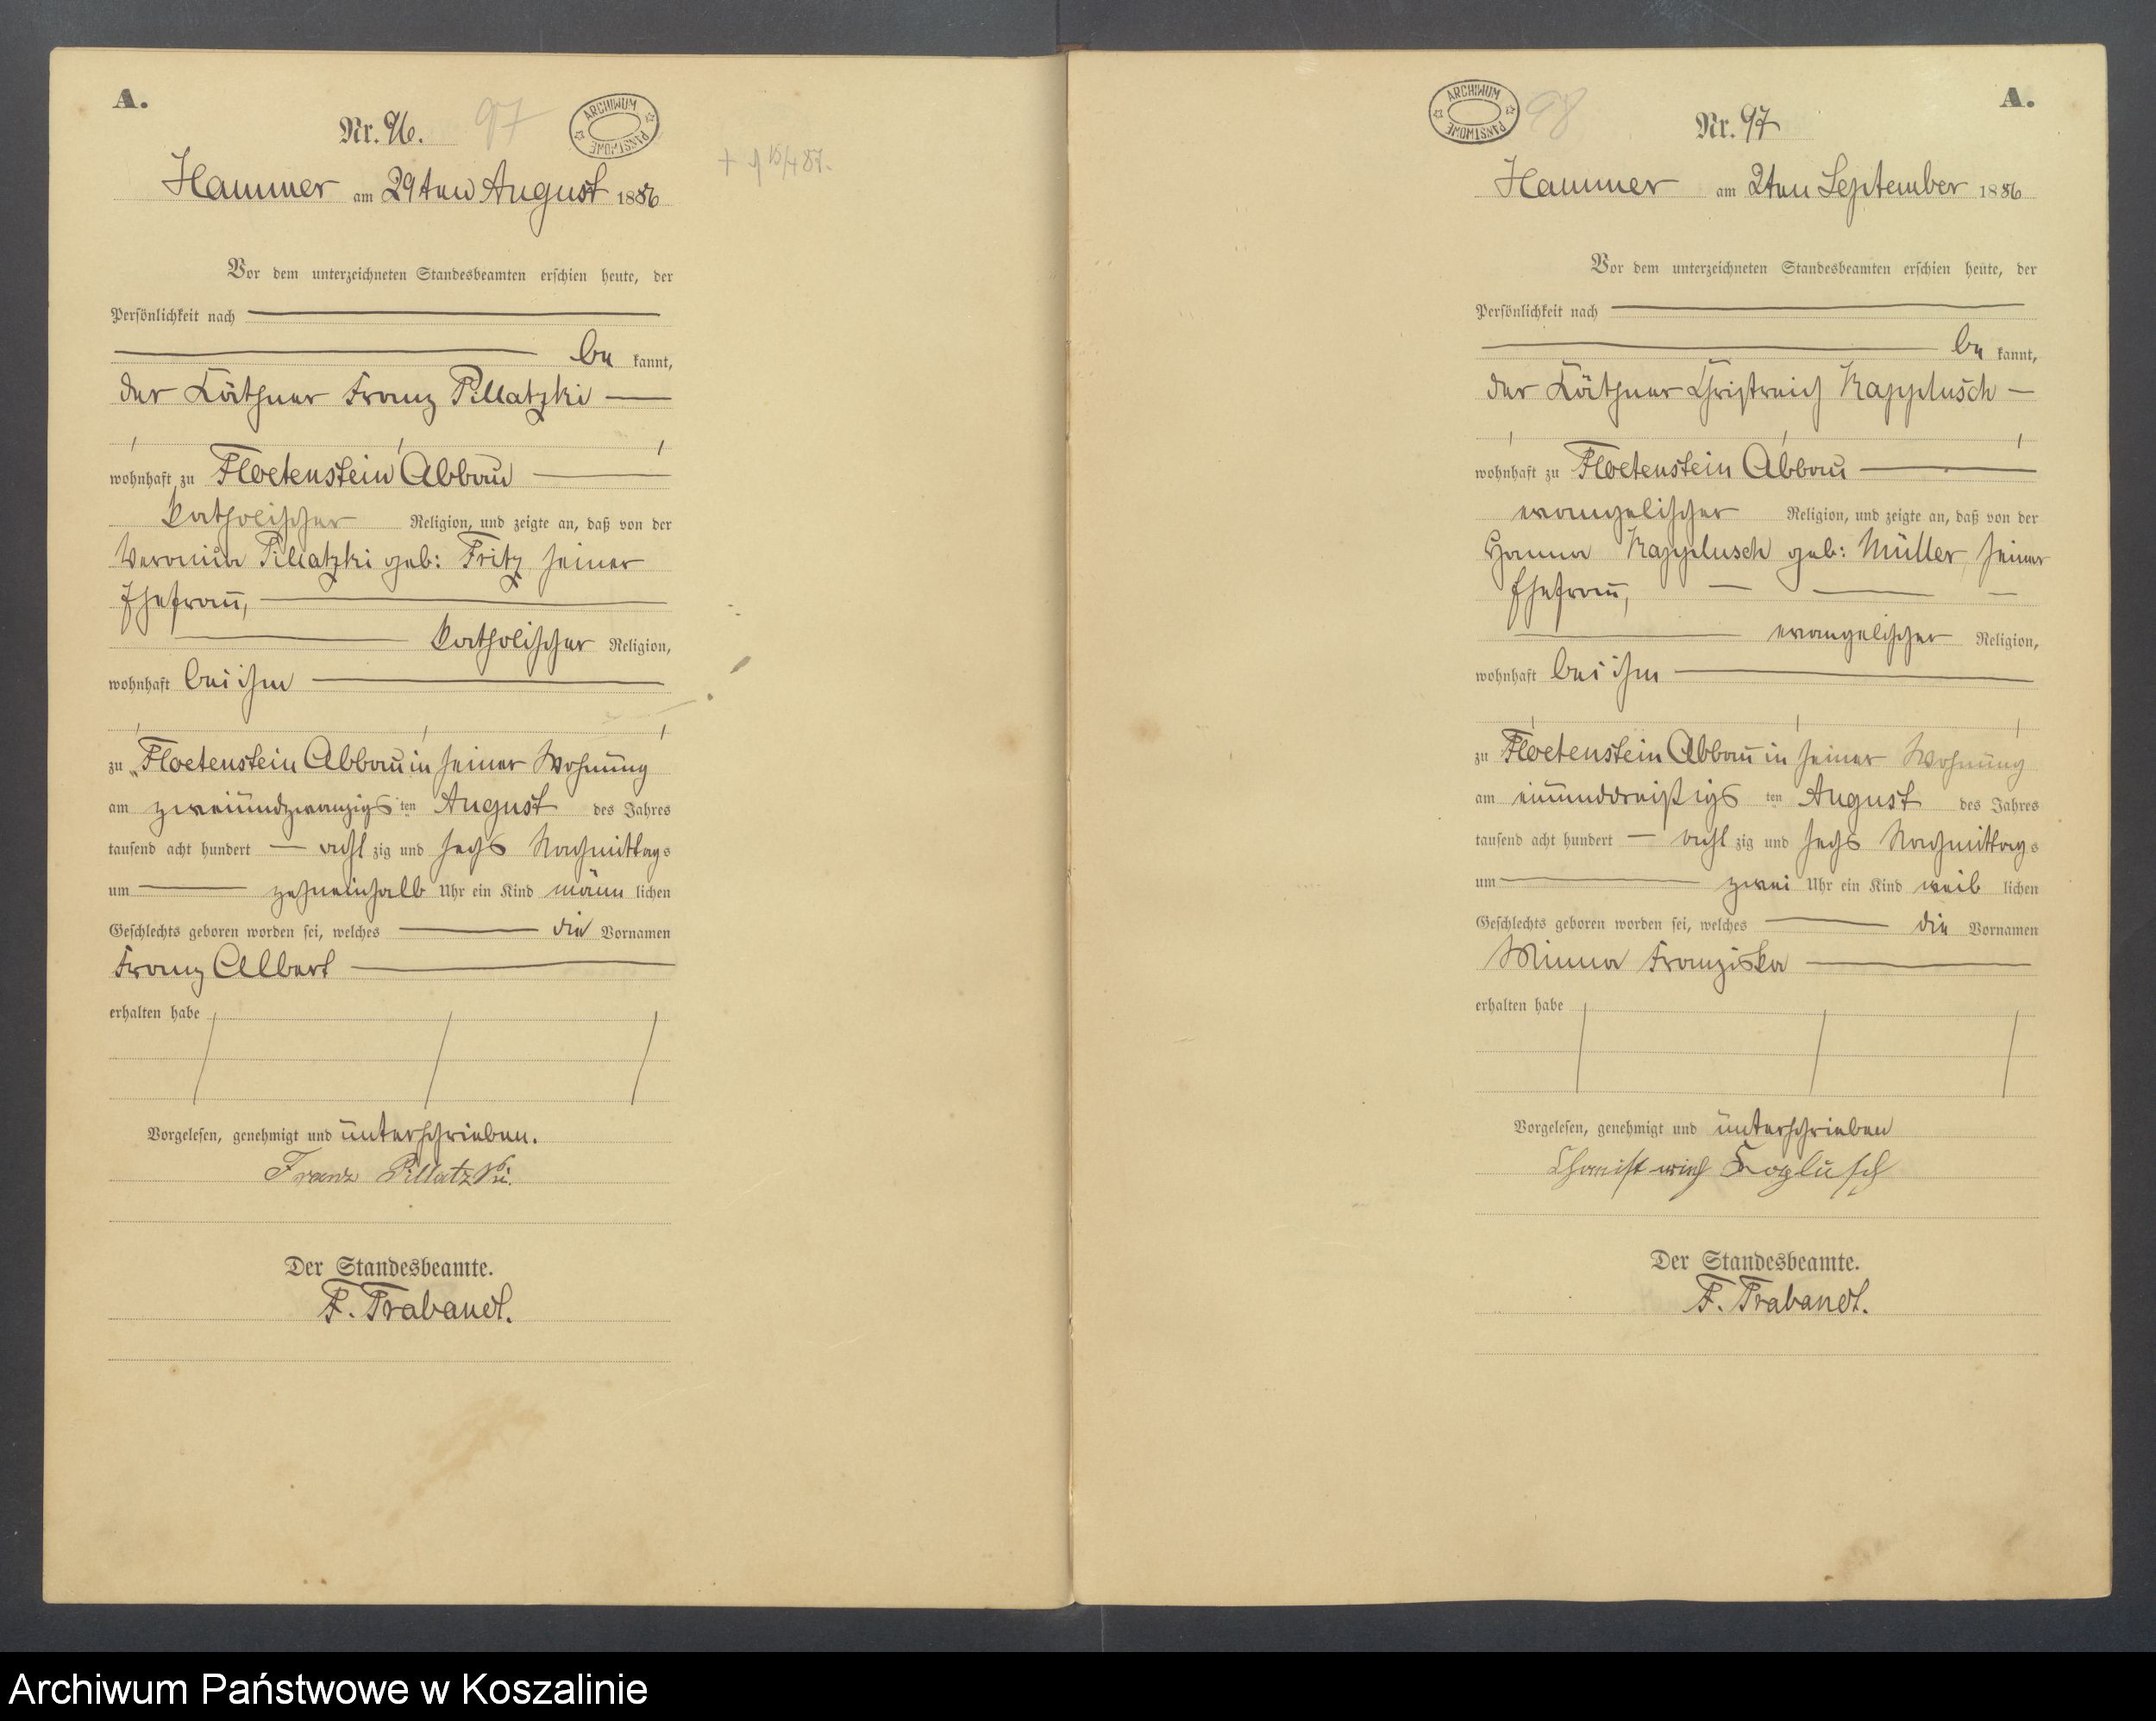 A.
Nr. 96.
97
ARCHIWUM PAŃSTWOWE
Hammer am 29ten August 1886
Vor dem unterzeichneten Standesbeamten erschien heute, der
Persönlichkeit nach
be kannt,
der Käthner Franz Pillatzki
wohnhaft zu Floetenstein Abbau
katholischer Religion, und zeigte an, daß von der
Veronika Pillatzki geb: Fritz seiner
Ehefrau,
katholischer Religion,
wohnhaft bei ihm
zu Floetenstein Abbau in seiner Wohnung
am zweiundzwanzigs ten August des Jahres
tausend acht hundert acht zig und sechs Nachmittags
um zehneinhalb Uhr ein Kind männ lichen
Geschlechts geboren worden sei, welches die Vornamen
Franz Albert
erhalten habe
Vorgelesen, genehmigt und unterschrieben.
Franz Pillatzki.
Der Standesbeamte.
F. Trabandt.
A.
Nr. 97
98
ARCHIWUM PAŃSTWOWE
Hammer am 2ten September 1886
Vor dem unterzeichneten Standesbeamten erschien heute, der
Persönlichkeit nach
be kannt,
der Käthner Christreich Kapplusch
wohnhaft zu Floetenstein Abbau
evangelischer Religion, und zeigte an, daß von der
Hanna Kapplusch geb: Müller, seiner
Ehefrau,
evangelischer Religion,
wohnhaft bei ihm
zu Floetenstein Abbau in seiner Wohnung
am einunddreißigs ten August des Jahres
tausend acht hundert acht zig und sechs Nachmittags
um zwei Uhr ein Kind weib lichen
Geschlechts geboren worden sei, welches die Vornamen
Minna Franziska
erhalten habe
Vorgelesen, genehmigt und unterschrieben
Der Standesbeamte.
F. Trabandt.
Archiwum Państwowe w Koszalinie